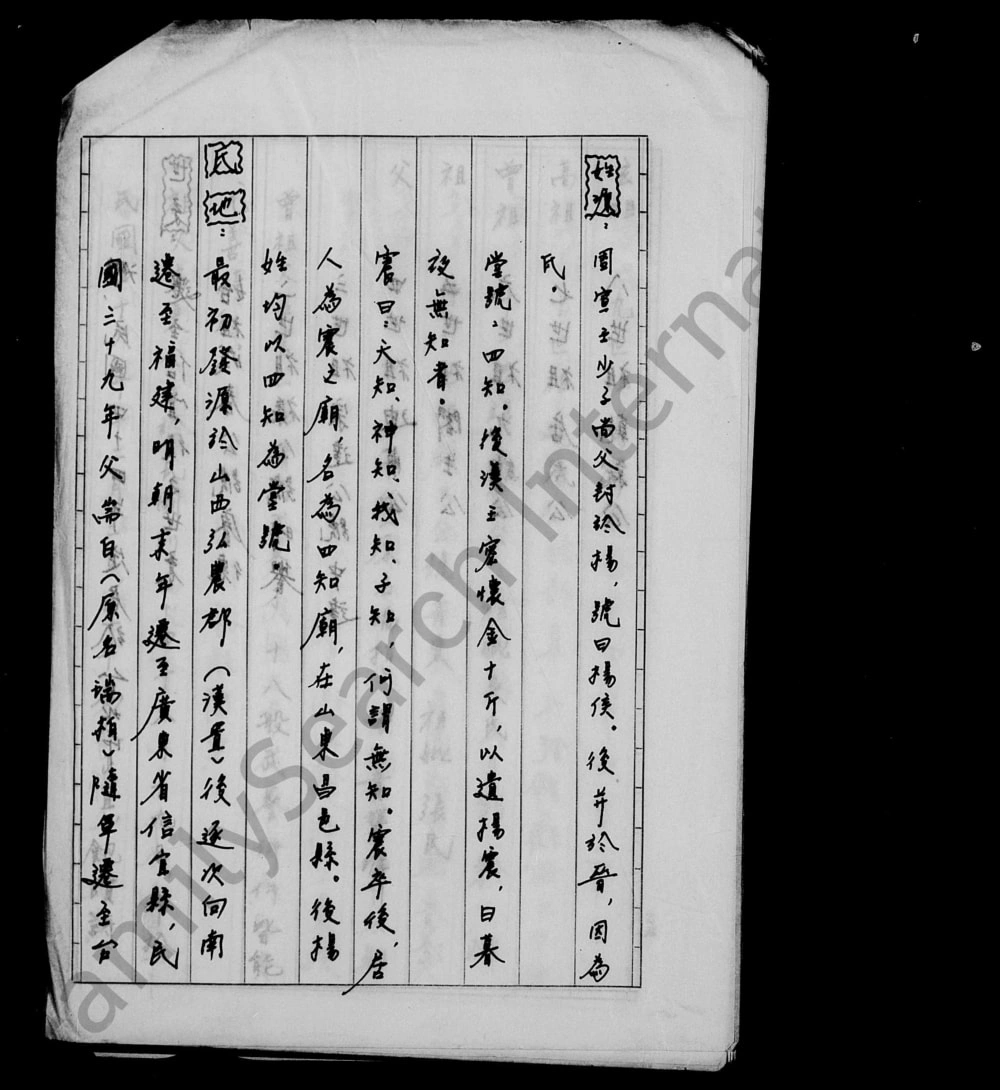 姓源：周宣王少子尚父封於楊，號曰楊侯。後并於晉，因為
氏。
堂號：四知。後漢王密懷金十斤，以遺楊震，曰暮
夜無知者。
震曰：天知、神知、我知、子知，何謂無知。震卒後，居
人為震之廟，名為四知廟，在山東昌邑縣。後楊
姓均以四知為堂號。
氏地：最初發源於山西弘農郡（漢置）後逐次向南
遷至福建，明朝末年遷至廣東省信宜縣，民
國三十九年父崗白（原名瑞栢）隨軍遷至台
FamilySearch Interna